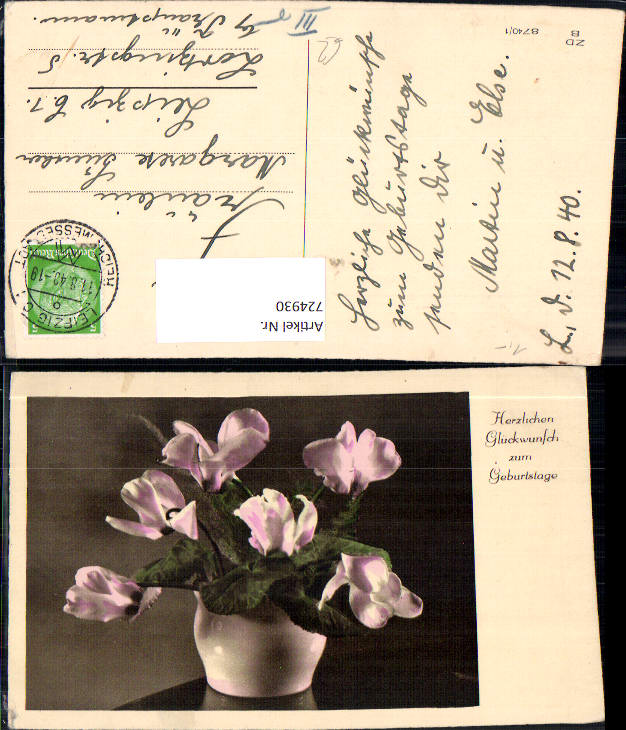 Herzliche Glückwünsche
zum Geburtstage
senden Dir
Martin u. Else.
L., d. 12.8.40.
Fräulein
Margarete
Leipzig C. 1.
Lortzingstr. 5
b/
Artikel Nr.
724930
LEIPZIG C1
11.8.40.-19
REICHSMESSESTADT
Deutsches Reich
III
ZD
B
8740/1
1,-
Herzlichen
Glückwunsch
zum
Geburtstage